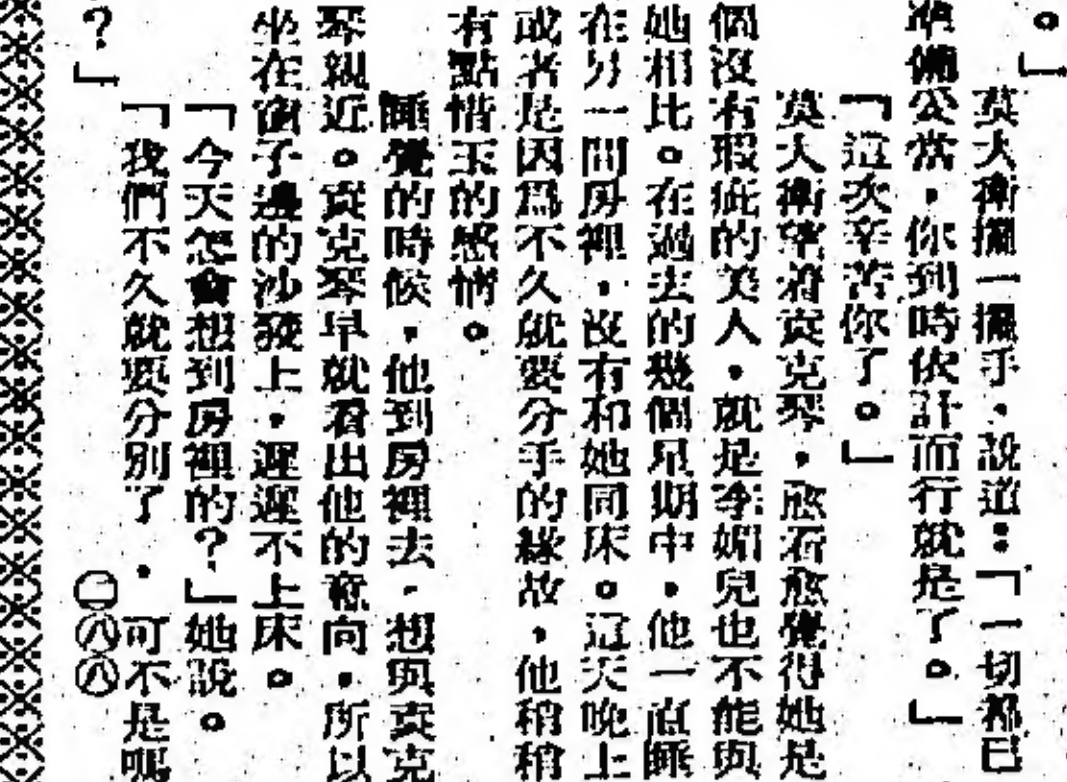 。」
莫大衛擺一擺手,說道:「一切都已
準備公當,你到時依計而行就是了。」
「這次辛苦你了。」
莫大衛望着袁克琴,愈看愈覺得她是
個沒有瑕疵的美人,就是李媚兒也不能與
她相比。在過去的幾個星期中,他一直睡
在另一間房裡,沒有和她同床。這天晚上
或者是因爲不久就要分手的緣故,他稍稍
有點惜玉的感情。
睡覺的時候,他到房裡去,想與袁克
琴親近。袁克琴早就看出他的意向,所以
坐在窗子邊的沙發上,遲遲不上床。
「今天怎會想到房裡的?」她說。
「我們不久就要分別了,可不是嗎
?」
㊁㊇㊇